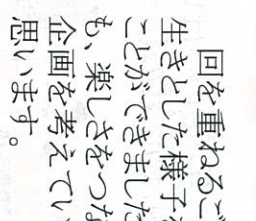 回を重ねるご
生きとした様子を
ことができました
も、楽しさをつな
企画を考えてい
思います。